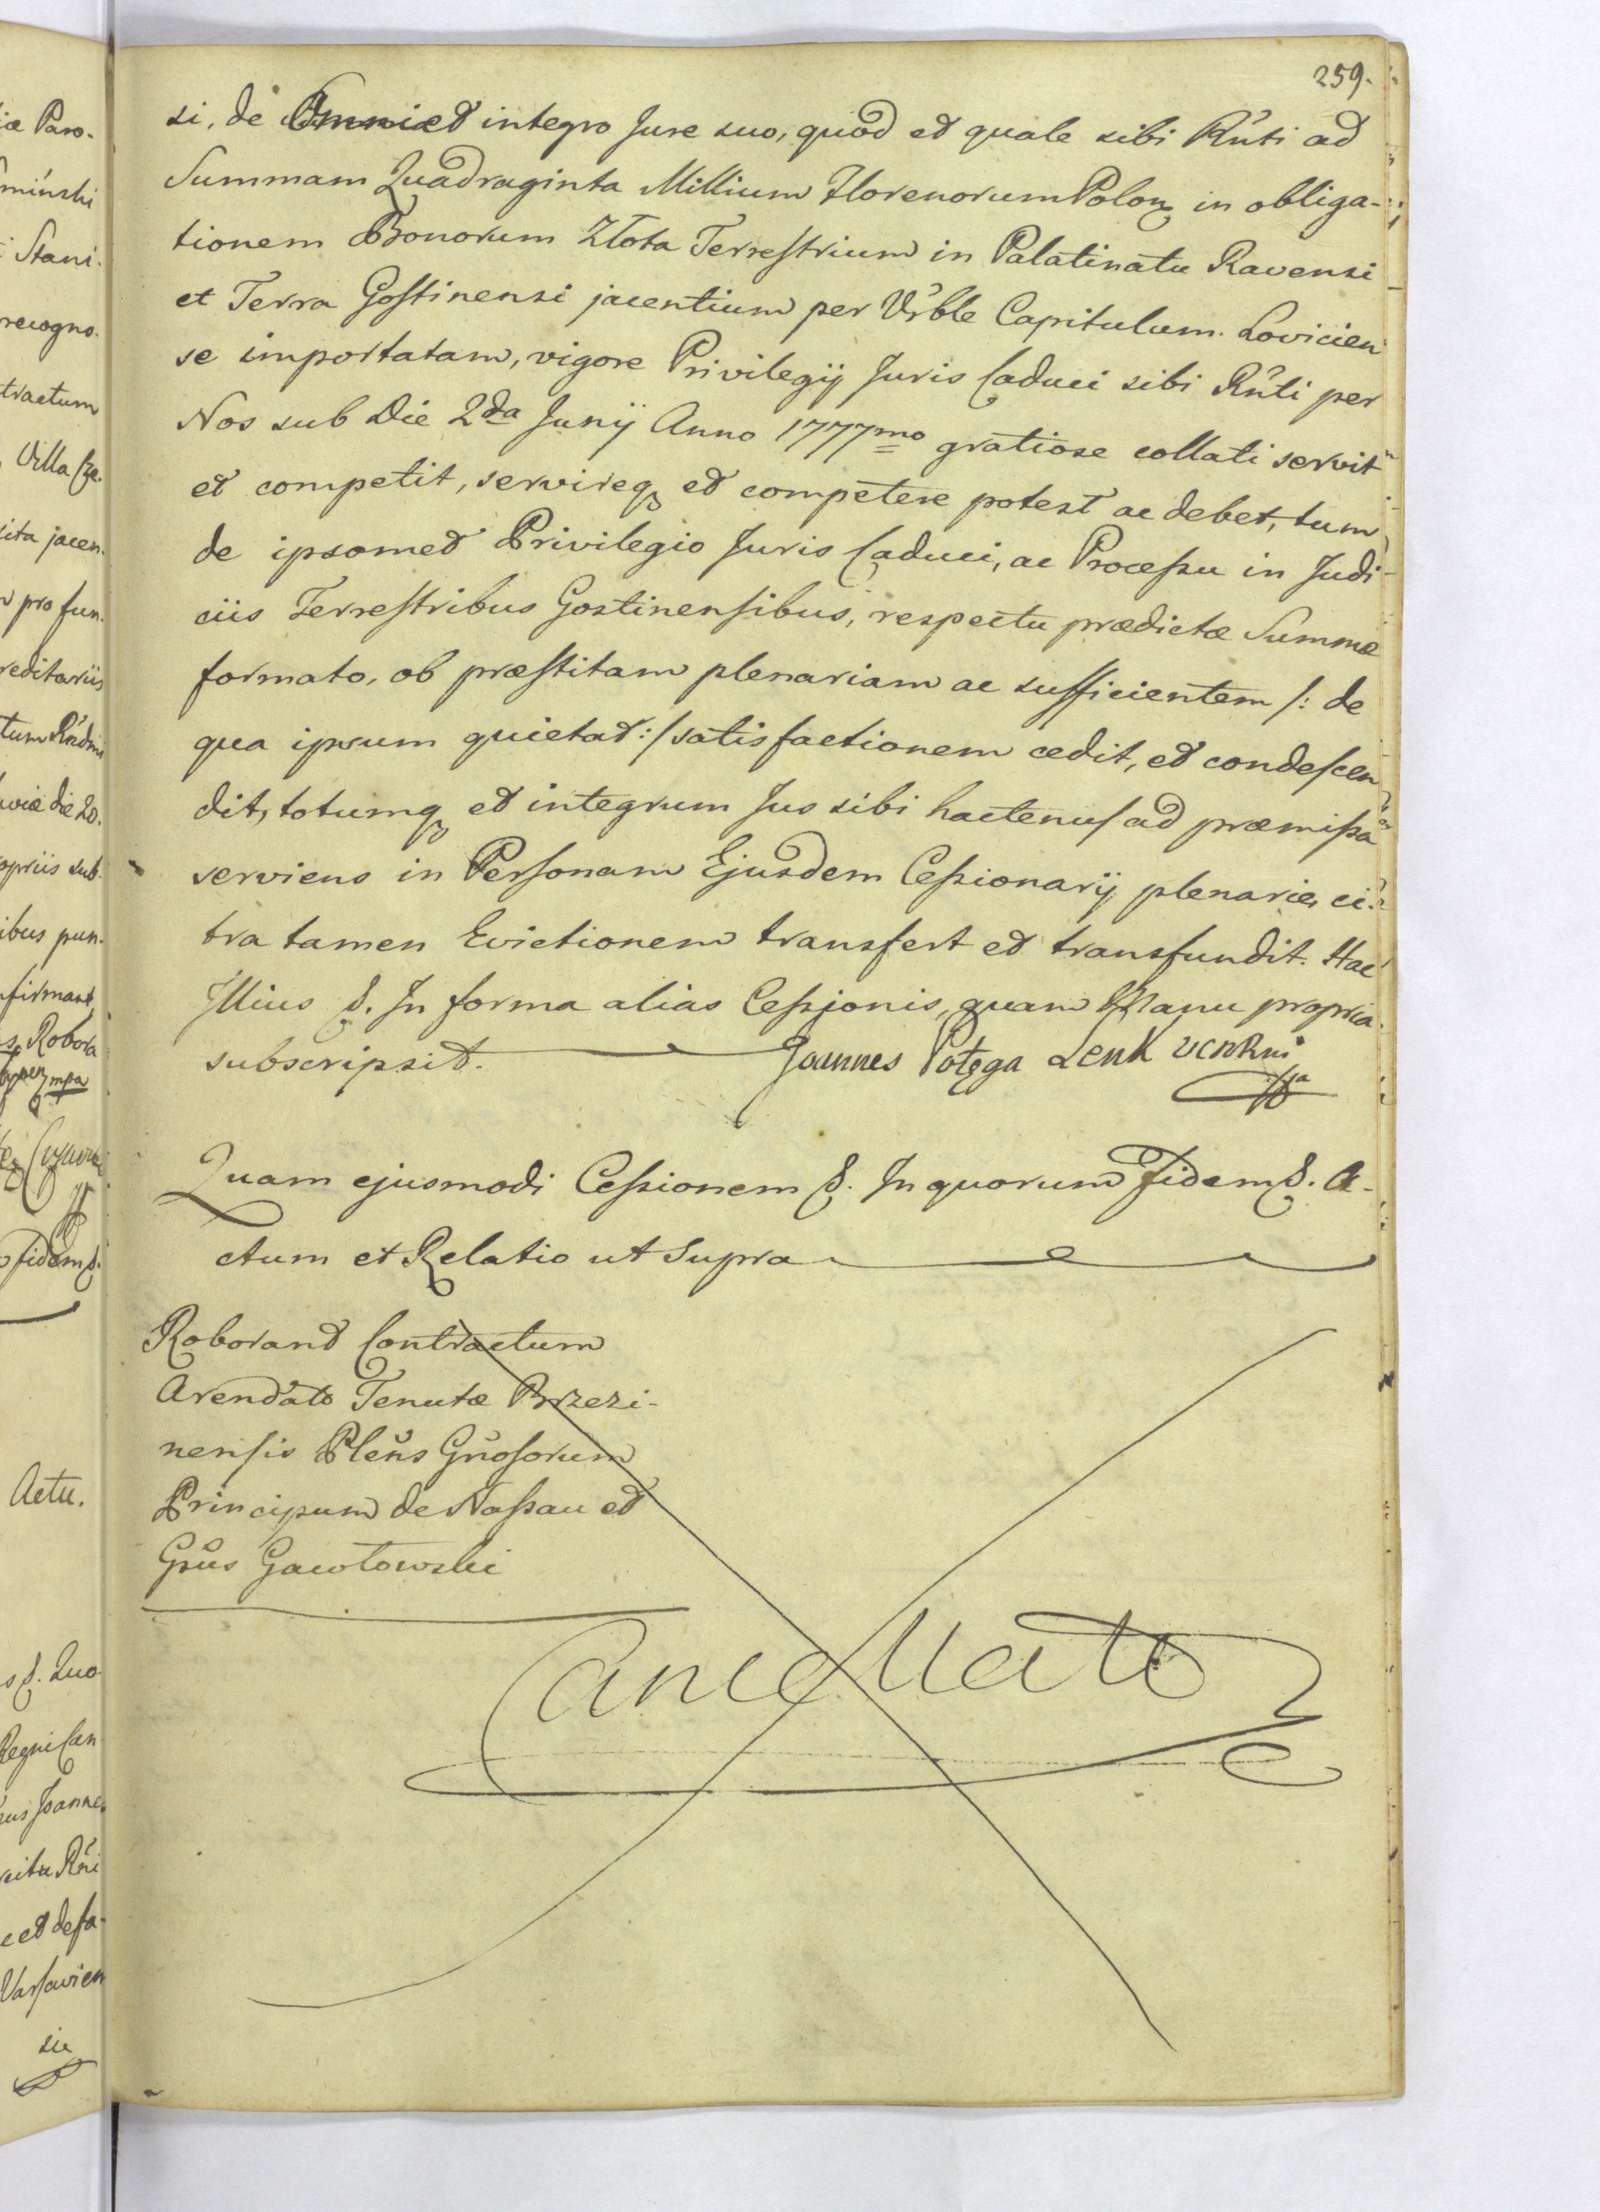 259.
si, de Omni et integro Jure suo, quod et quale sibi Rñti ad
Summam Quadraginta Millium Florenorum Polon in obliga-
tionem Bonorum Złota Terreſtrium in Palatinatu Ravensi
et Terra Goſtinensi jacentium per Vrble Capitulum Lovicien
se importatam, vigore Privilegij Juris Caduci sibi Rñti per
Nos sub Die 2da Junij Anno 1777mo gratiose collati servit
et competit, servireq et competere potest ac debet, tum
de ipsomet Privilegio Juris Caduci, ac Proceſsu in Judi-
ciis Terreſtribus Gostinenſibus, respectu prædictæ Summæ
formato, ob præſtitam plenariam ac sufficientem /: de
qua ipsum quietat :/ satisfactionem cedit, et condeſcen
dit, totumq et integrum Jus sibi hactenuſ ad præmiſsa
serviens in Perſonam Ejusdem Ceſsionarij plenarie, ci-
tra tamen Evictionem transfert et transfundit. Hac
Illius &. In forma alias Ceſsionis, quam Manu propria
subscripsit. Joannes Potęga
Quam ejusmodi Ceſsionem &. In quorum Fidem &. A-
ctum et Relatio ut Supra
Roborand Contractum
Arendato Tenutæ Brzezi-
nenſis Pleñs Gñoſorum
Principum de Naſsau et
Gñus Gawłowski
Cancellate
iæ Paro-
miński
Stani-
recogno-
tractum
Villa
sita jacen-
pro fun-
reditariis
die 20.
propriis sub-
ibus pun-
firmant
Robora
mpa
Fidem &.
Actu.
s &. Quo
Regni Can
us Joannes
et defa-
Varſavien
sie